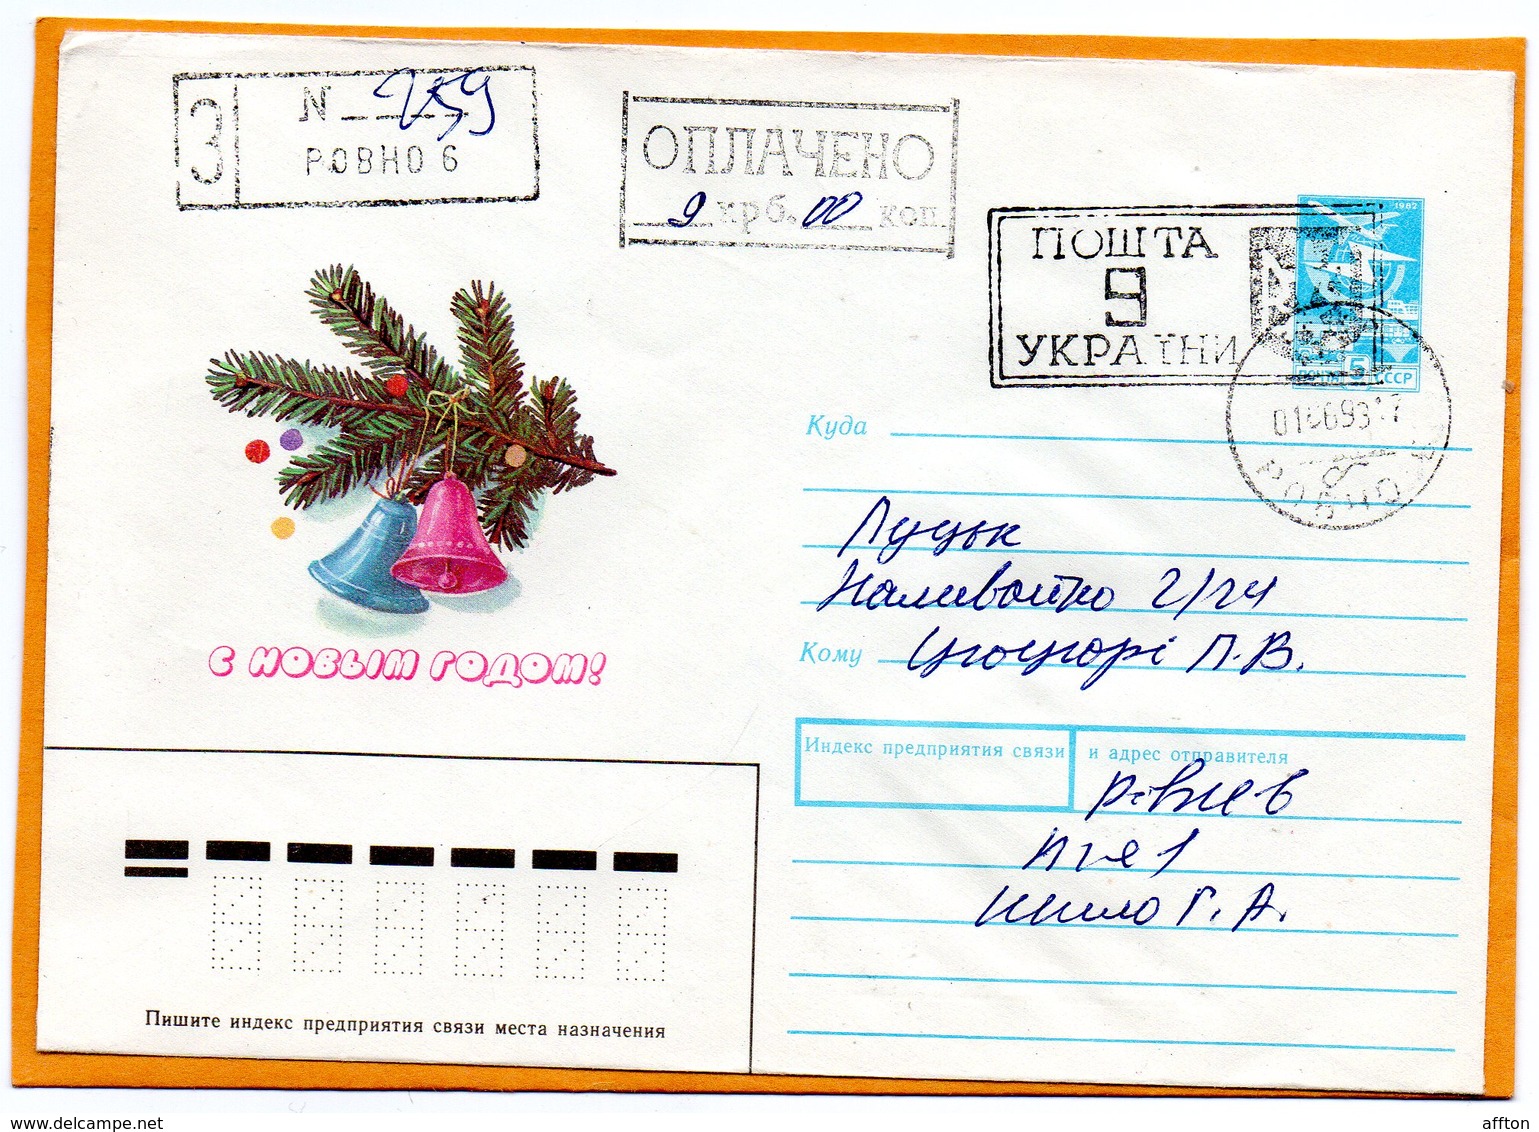 З
N 259
РОВНО 6
ОПЛАЧЕНО
9 крб. 00 коп.
ПОШТА
9
УКРАЇНИ
1982
ПОЧТА 5 СССР
010693 17
РОВНО
Куда
Луцьк
Наливайко 2/24
Кому П.В.
Индекс предприятия связи и адрес отправителя
1
Шило Г. А.
С НОВЫМ ГОДОМ!
Пишите индекс предприятия связи места назначения
www.delcampe.net
affton